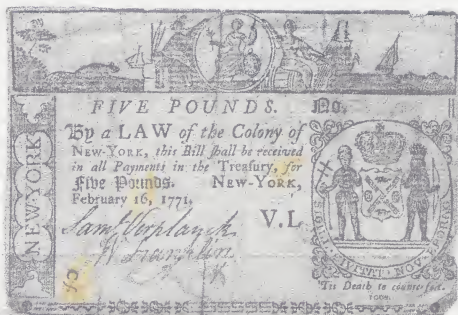 FIVE POUNDS. No.
By a LAW of the Colony of
NEW-YORK, this Bill shall be received
in all Payments in the Treasury, for
Five Pounds. NEW-YORK,
February 16, 1771.
V.L
Saml Verplanck
W Franklin
NEW-YORK
SIGILL
'Tis Death to counterfeit.